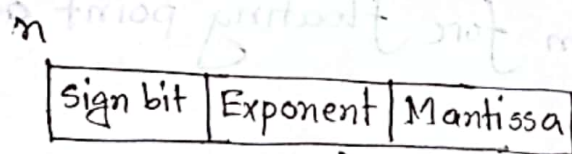 n
Sign bit Exponent Mantissa